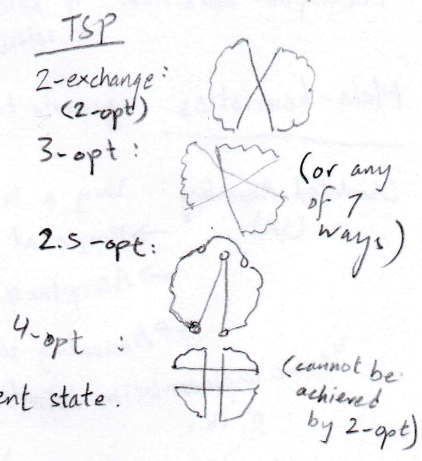 TSP
2-exchange:
(2-opt)
3-opt :
(or any
of 7
ways)
2.5-opt:
4-opt :
(cannot be
achieved
by 2-opt)
ent state.